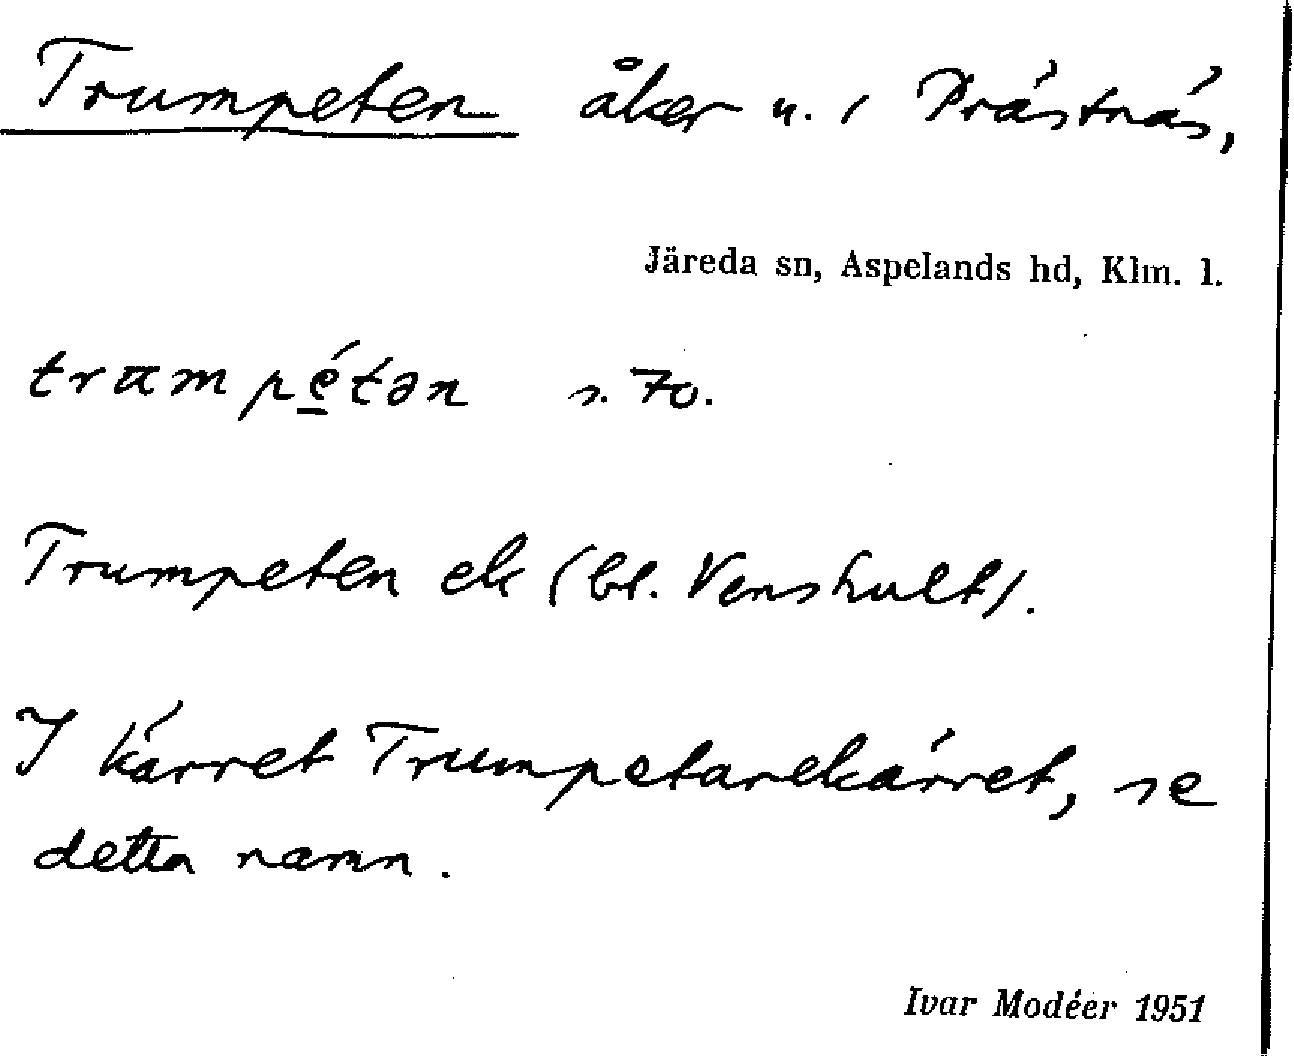 Trumpeten åker n. i Prästnäs,
Järeda sn, Aspelands hd, Klm. l.
trumpétən s. 70.
Trumpeten ek (bl. Venshult).
I kärret Trumpetarekärret, se
detta namn.
Ivar Modéer 1951